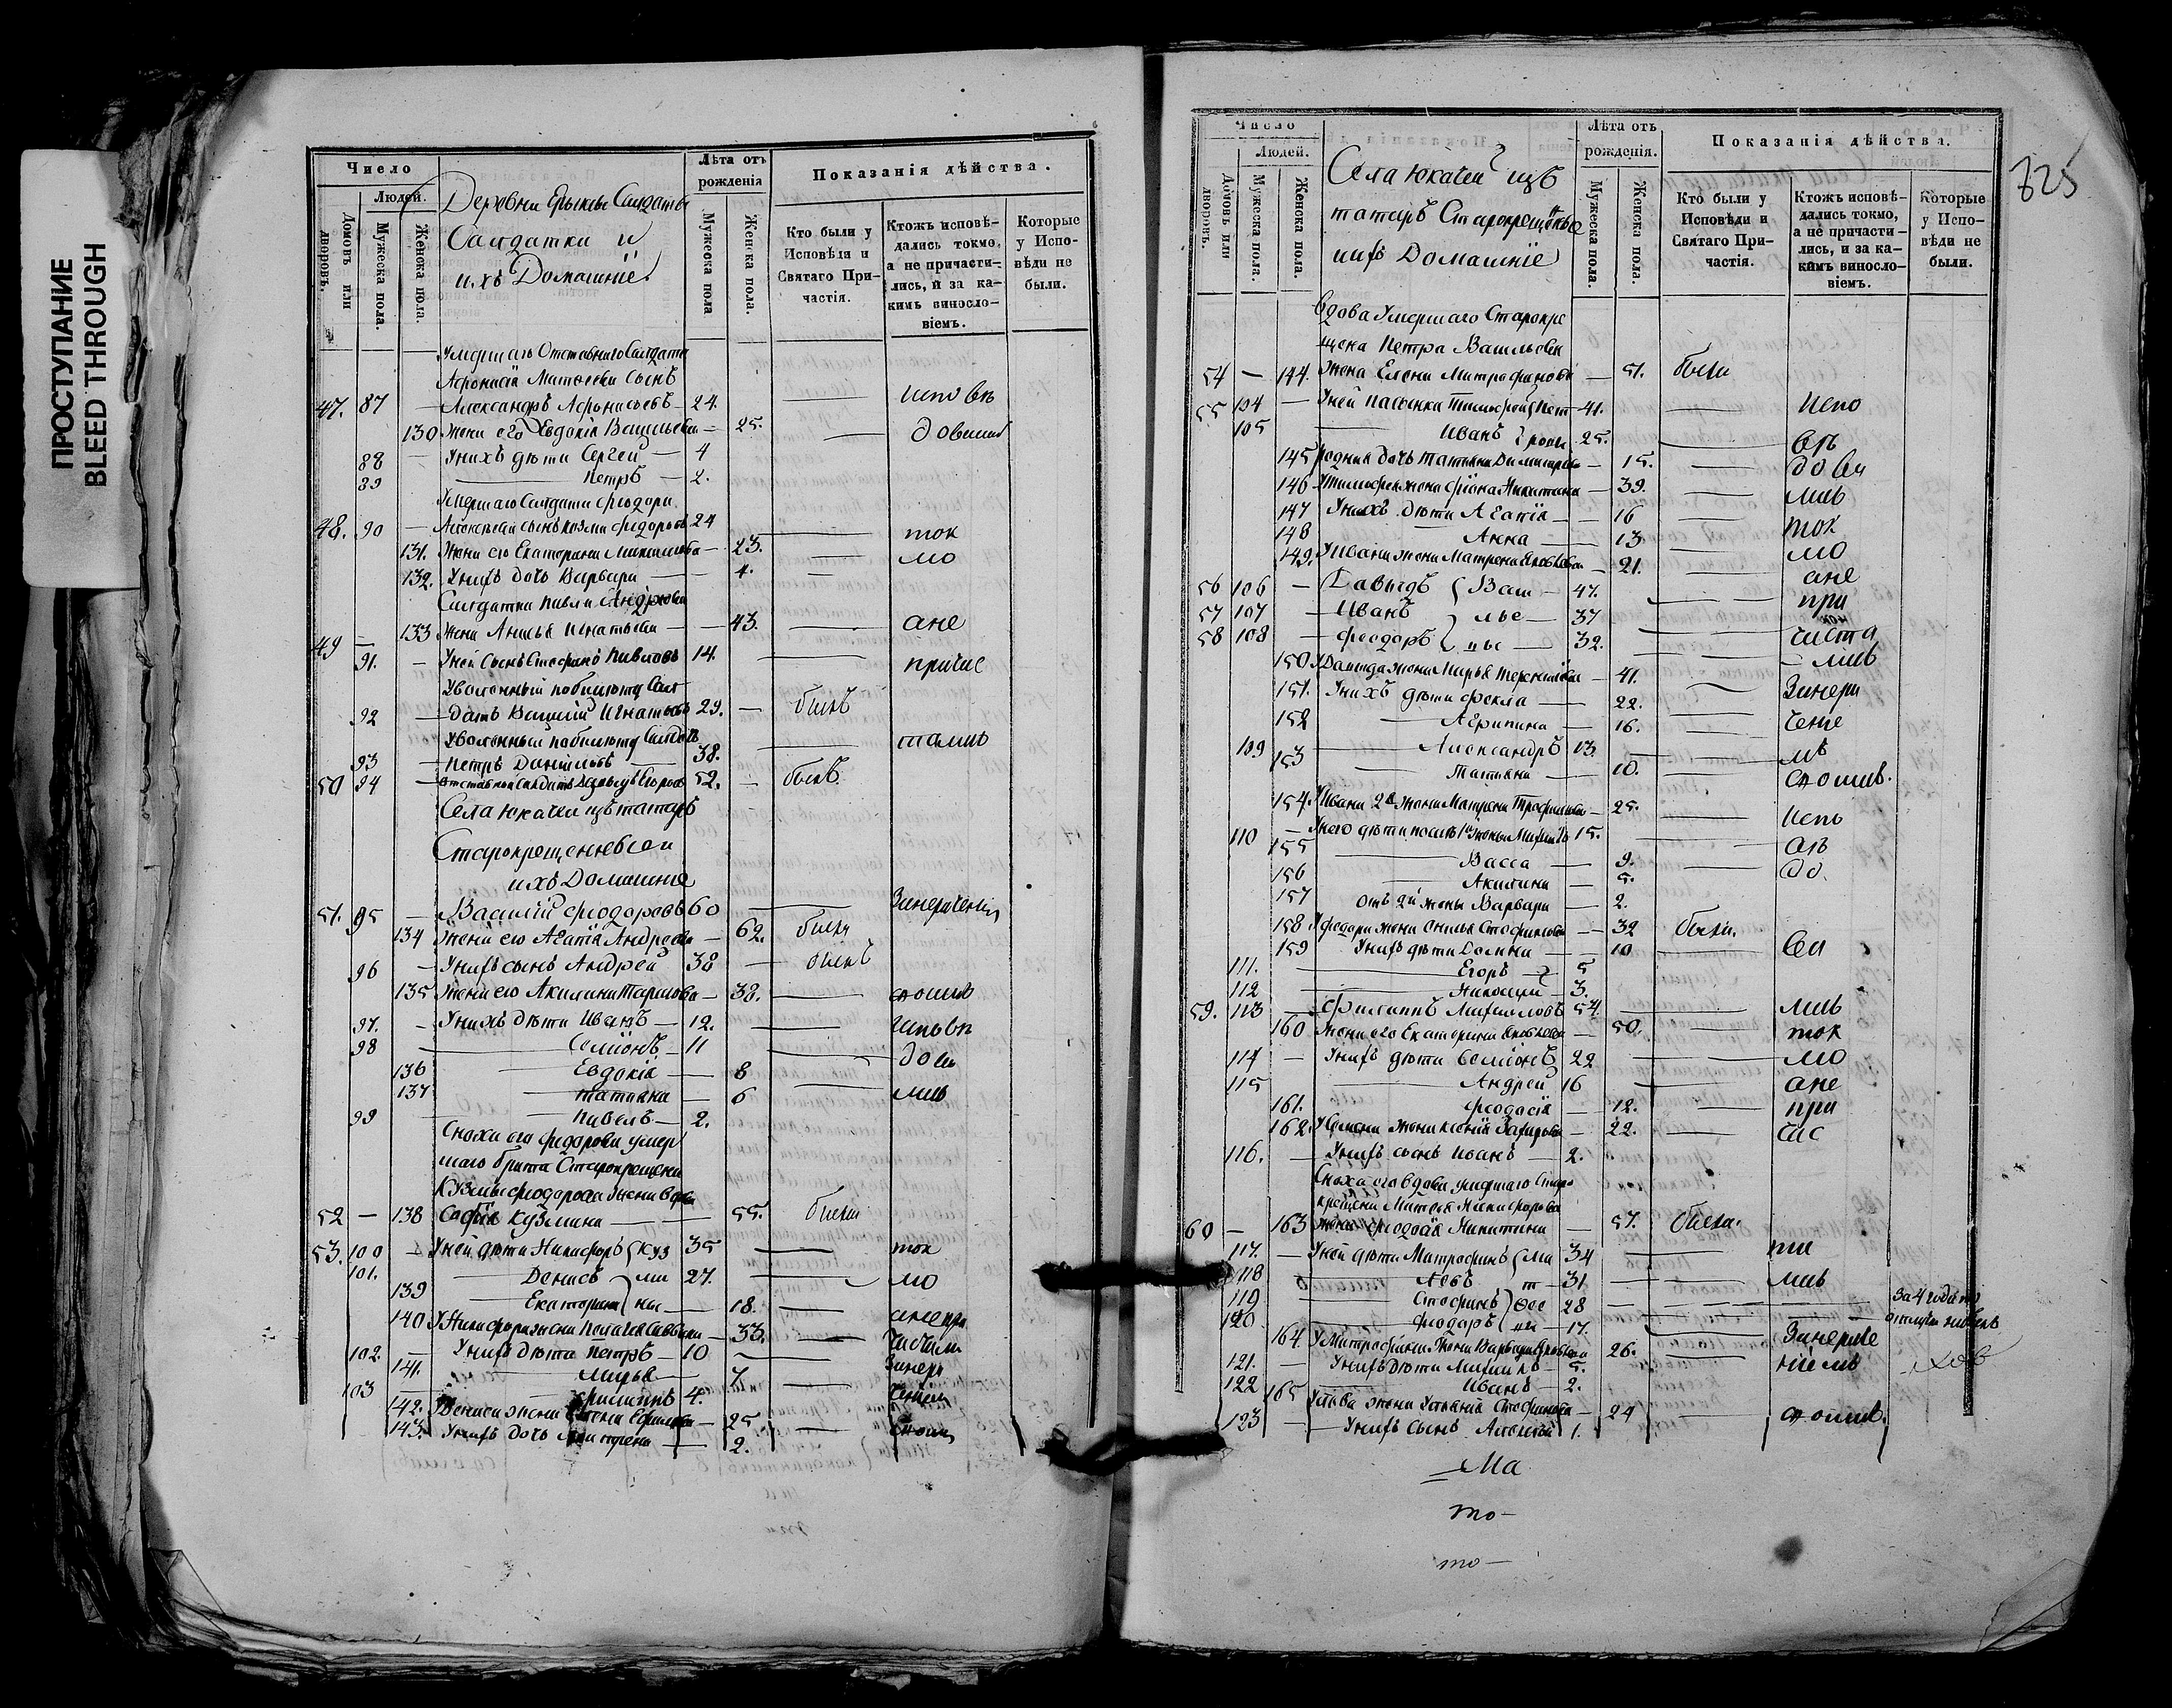 ПРОСТУПАНИЕ
BLEED THROUGH
Число
Людей.
Домовъ или дворовъ.
Мужеска пола.
Женска пола.
Деревни Ерыклы Салдаты
Салдатки и
ихъ Домашніе
Лѣта отъ рожденія
Мужеска пола
Женска пола.
Показанія дѣйства.
Кто были у Исповѣди и Святаго Причастія.
Ктожъ исповѣдались токмо, а не причастились, и за какимъ винословіемъ.
Которые у Исповѣди не были.
Умершаго Отставнаго Салдата
Афонасія Матвеева сынъ
47. 87 — Александръ Афонасьевъ — 24. — исповѣ
130 Жена его Евдокія Васильева — 25. — довались
88 — У нихъ дѣти Сергей — 4
89 — Петръ — 2.
Умершаго Салдата Феодора
48. 90 — Алексеева сынъ Козма Федоровъ 24 — ток
131. Жена его Екатерина Максимова — 23. — мо
132. У нихъ дочь Варвара — 4. —
Салдатки Павла Андреева
49 — 133 Жена Анисья Игнатьева — 43. — ане
91. — У ней сынъ Стефанъ Павловъ 14. — причас
Уволенный по билету Сал
92 — датъ Василій Игнатьевъ 29. — былъ
Уволенный по билету Салдатъ
93 — Петръ Даниловъ — 38. — тались
50 94 — Отставной Салдатъ Давыдъ Егоровъ 52. — былъ.
Села Юкачей изъ татаръ
Старокрещеные и
ихъ Домашніе
51. 95 — Василій Феодоровъ 60 — Занераченіем
134 Жена его Агапія Андреева — 62. была
96 — У нихъ сынъ Андрей 38 — былъ
135 Жена его Акилина Тарасова — 38. — сполнъ
97. — У нихъ дѣти Иванъ — 12. — исповѣ
98 — Семіонъ — 11 — дова
136 — Евдокія — 8
137 — Татьяна — 6 — лись
99 — Павелъ — 2.
Сноха его Федорова умер
шаго брата Старокрещена
Кузмы Феодорова жена вдова
52 — 138 Софія Кузмина — 55. была
53. 100 — У ней дѣти Никифоръ (Куз 35 — ток
101. — Денисъ } ми 27. — мо
139 — Екатерина ны — 18. — анепри
140 У Никифора жена Пелагея Саввина — 33. — частили
102. — У нихъ дѣти Петръ — 10
141. — Марья — 7 — Занера
103 — Филиппъ 4. — ченіем
142. У Дениса жена Елена Ефимова — 25 —
143. У нихъ дочь Матрена — 2.
825
Число
Людей.
Домовъ или дворовъ.
Мужеска пола.
Женска пола.
Села Юкачей изъ
татаръ Старокрещеные
ихъ Домашніе
Лѣта отъ рожденія.
Мужеска пола.
Женска пола.
Показанія дѣйства.
Кто были у Исповѣди и Святаго Причастія.
Ктожъ исповѣдались токмо, а не причастились, и за какимъ винословіемъ.
Которые у Исповѣди не были.
Вдова умершаго Старокре
щена Петра Васильева
54 — 144. Жена Елена Митрофанова — 51. была
55 104 — У ней пасынки Тимофей } Пет — 41. — испо
105 — Иванъ } ровы 25. — вѣ
145 Родная дочь Татьяна Димитріева — 15. — дова
146 У Тимофея жена Фіона Никитина — 39. — лись
147 У нихъ дѣти Агапія — 16 — ток
148 — Анна — 13 — мо
149. У Ивана жена Матрена Яковлева — 21. — ане
56 106 — Давыдъ { Васи — 47. — при
57 107 — Иванъ } лье — 37 — часта
58 108 — Феодоръ } вы — 32. — лись
150 У Давыда жена Марья Терентіева — 41. — Занера
151. У нихъ дѣти Фекла — 22. — ченіе
152 — Агрипина — 16. — мъ
109 — Александръ 13.
153 — Татьяна — 10. — сполнъ.
154. У Ивана 2я жена Матрена Трофимова — 25. — испо
110 — У него дѣти после 1й жены Михаилъ 15. — вѣ
155 — Васса — 9. — до.
156 — Акилина — 5.
157 отъ 2й жены Варвара — 2.
158 У Федора жена Стефанова — 32 была.
159 У нихъ дѣти — 10 — ва
111. — Егоръ — 5
112 — Николай — 3.
59. 113 — Филиппъ Михаиловъ 54. — лись
160 Жена его Екатерина Яковлева — 50. — ток
114 — У нихъ дѣти Семіонъ 22 — мо
115 — Андрей 16 — ане
161. — Феодосія — 12. — при
162. У Семена жена Ксенія Захарова — 22. — час
116. — У нихъ сынъ Иванъ — 2.
Сноха его вдова умершаго Старо
крещена Матвея Никифорова
60 — 163 Жена Феодосія Никитина — 57. была.
117. — У ней дѣти Митрофанъ { Ма 34 — ти
118 — Левъ т — 31 — лись
119 — Стефанъ } ѳее 28 —
120 — Феодоръ } вы — 17.
за 4 года по
164. У Митрофана жена Варвара Яковлева — 26. — Занераче
121. — У нихъ дѣти Михаилъ — 5. — ніемъ
122 — Иванъ — 2.
165 У Льва жена Ульянія Стефанова — 24 — сполнъ.
123 — У нихъ сынъ Алексей 1.
Ма
то —
то —